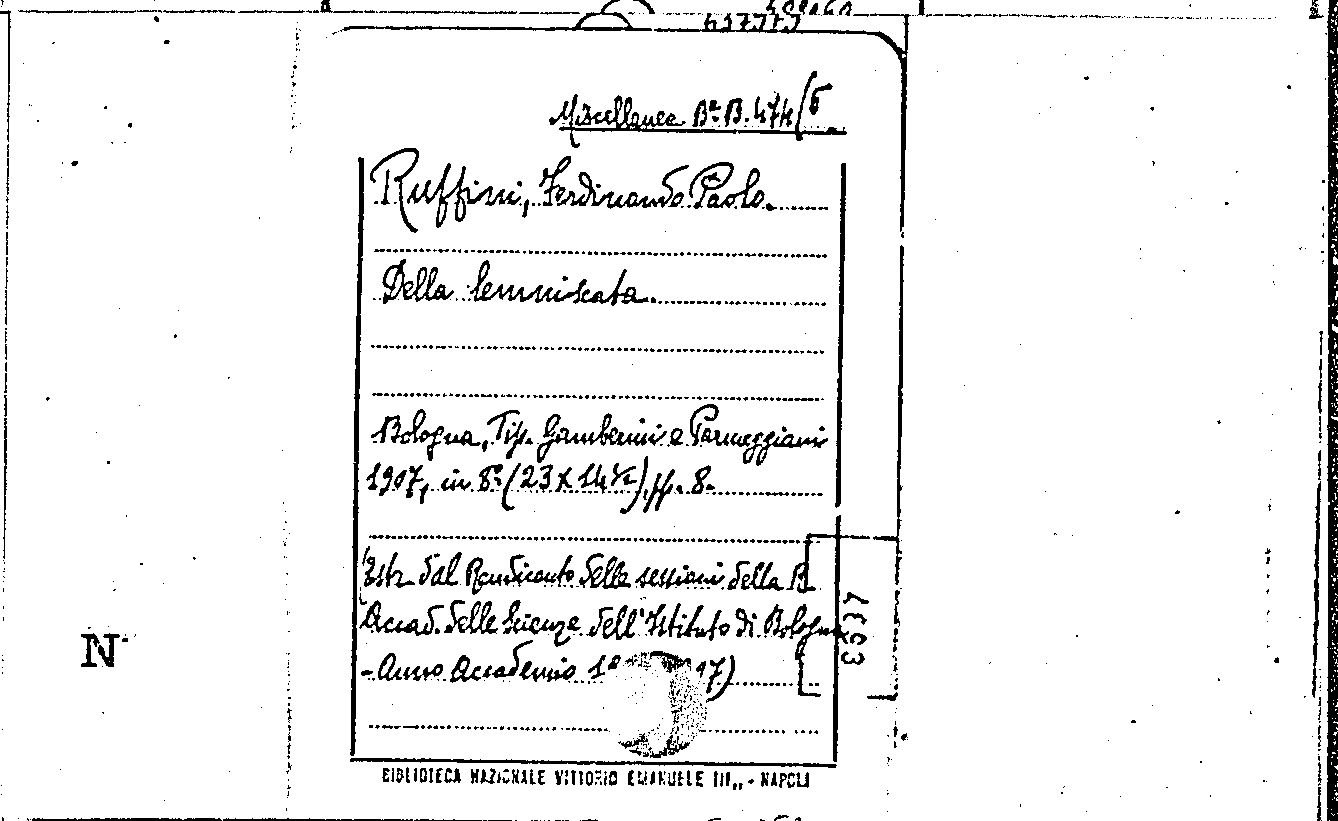 Miscellanea Bª B. 474/5
Ruffini, Ferdinando Paolo.
Della lemniscata.
Bologna, Tip. Gamberini e Parmeggiani
1907, in 8º (23 x 14½), pp. 8.
(Estr. dal Rendiconto delle sessioni della R.
Accad. delle Scienze dell'Istituto di Bologna
- Anno Accademico 19
07)
BIBLIOTECA NAZIONALE VITTORIO EMANUELE III,, - NAPOLI
N